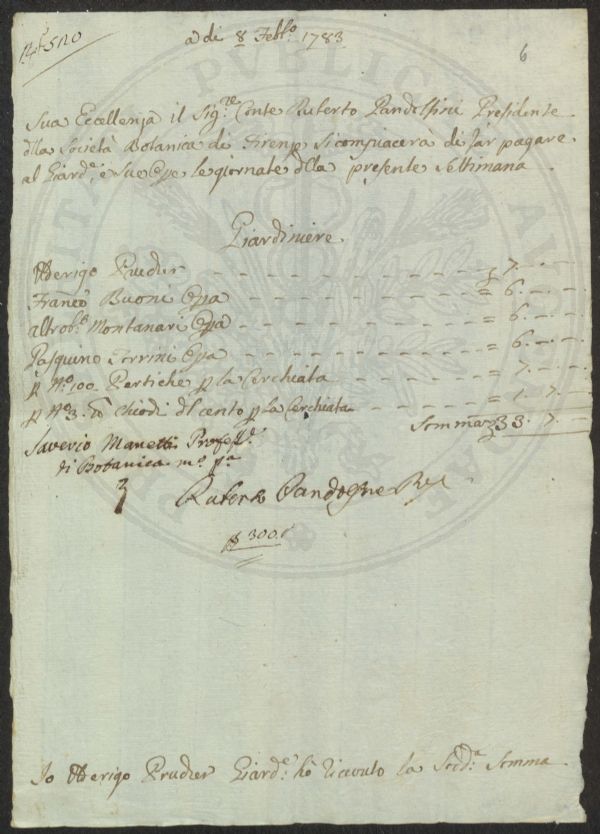 a di 8 Febb.º 1783
6
Sua Eccellenza il Sig.re Conte Ruberto Pandolfini Presidente
d̃lla Società Botanica di Firenze si compiacerà di far pagare
al Giard.e e sue Opre le giornate d̃lla presente Settimana
Giardiniere
Uberigo Prucher 7. — —
Franc.º Buoni Opra = 6. — —
Montanari Opra = 6. — —
Pasquino Torrini Opra = 6. — —
p N.º 100. Pertiche p la Cerchiata = 7. — —
p N.º 3. chiodi d̃l Cento p la Cerchiata = 1. 7. —
Somma 33. 7. —
Saverio Manetti Profess.e
di Botanica m.º p.a
300.
Io Uberigo Prucher Giard.e hò ricevuto la Sud.a Somma
PUBLICA